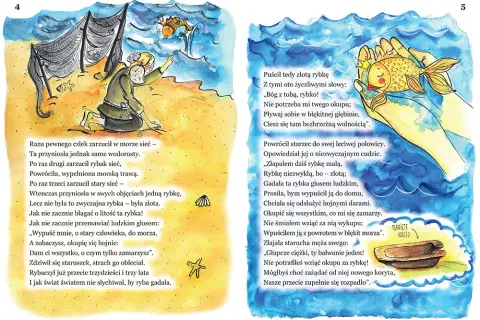 4
Razu pewnego człek zarzucił w morze sieć –
Ta przyniosła jednak same wodorosty.
Po raz drugi zarzucił rybak sieć,
Powróciła, wypełniona morską trawą.
Po raz trzeci zarzucił stary sieć –
Wtenczas przyniosła w swych objęciach jedną rybkę,
Lecz nie była to zwyczajna rybka – była złota.
Jak nie zacznie błagać o litość ta rybka!
Jak nie zacznie przemawiać ludzkim głosem:
„Wypuść mnie, o stary człowieku, do morza,
A zobaczysz, okupię się hojnie:
Dam ci wszystko, o czym tylko zamarzysz".
Zdziwił się staruszek, strach go obleciał.
Rybaczył już przecie trzydzieści i trzy lata
I jak świat światem nie słychiwał, by ryba gadała.
5
Puścił tedy złotą rybkę
Z tymi oto życzliwymi słowy:
„Bóg z tobą, rybko!
Nie potrzeba mi twego okupu;
Pływaj sobie w błękitnej głębinie,
Ciesz się tam bezbrzeżną wolnością".
Powrócił starzec do swej leciwej połowicy,
Opowiedział jej o niezwyczajnym cudzie.
„Złapałem dziś rybkę małą,
Rybkę niezwykłą, bo – złotą;
Gadała ta rybka głosem ludzkim,
Prosiła, bym wypuścił ją do domu,
Chciała się odsłużyć hojnymi darami.
Okupić się wszystkim, co mi się zamarzy.
Nie śmiałem wziąć za nią wykupu;
Wpuściłem ją z powrotem w błękit morza".
Złajała starucha męża swego:
„Głupcze ciężki, ty bałwanie jeden!
Nie potrafiłeś wziąć okupu za rybkę!
Mógłbyś choć zażądać od niej nowego koryta,
Nasze przecie zupełnie się rozpadło".